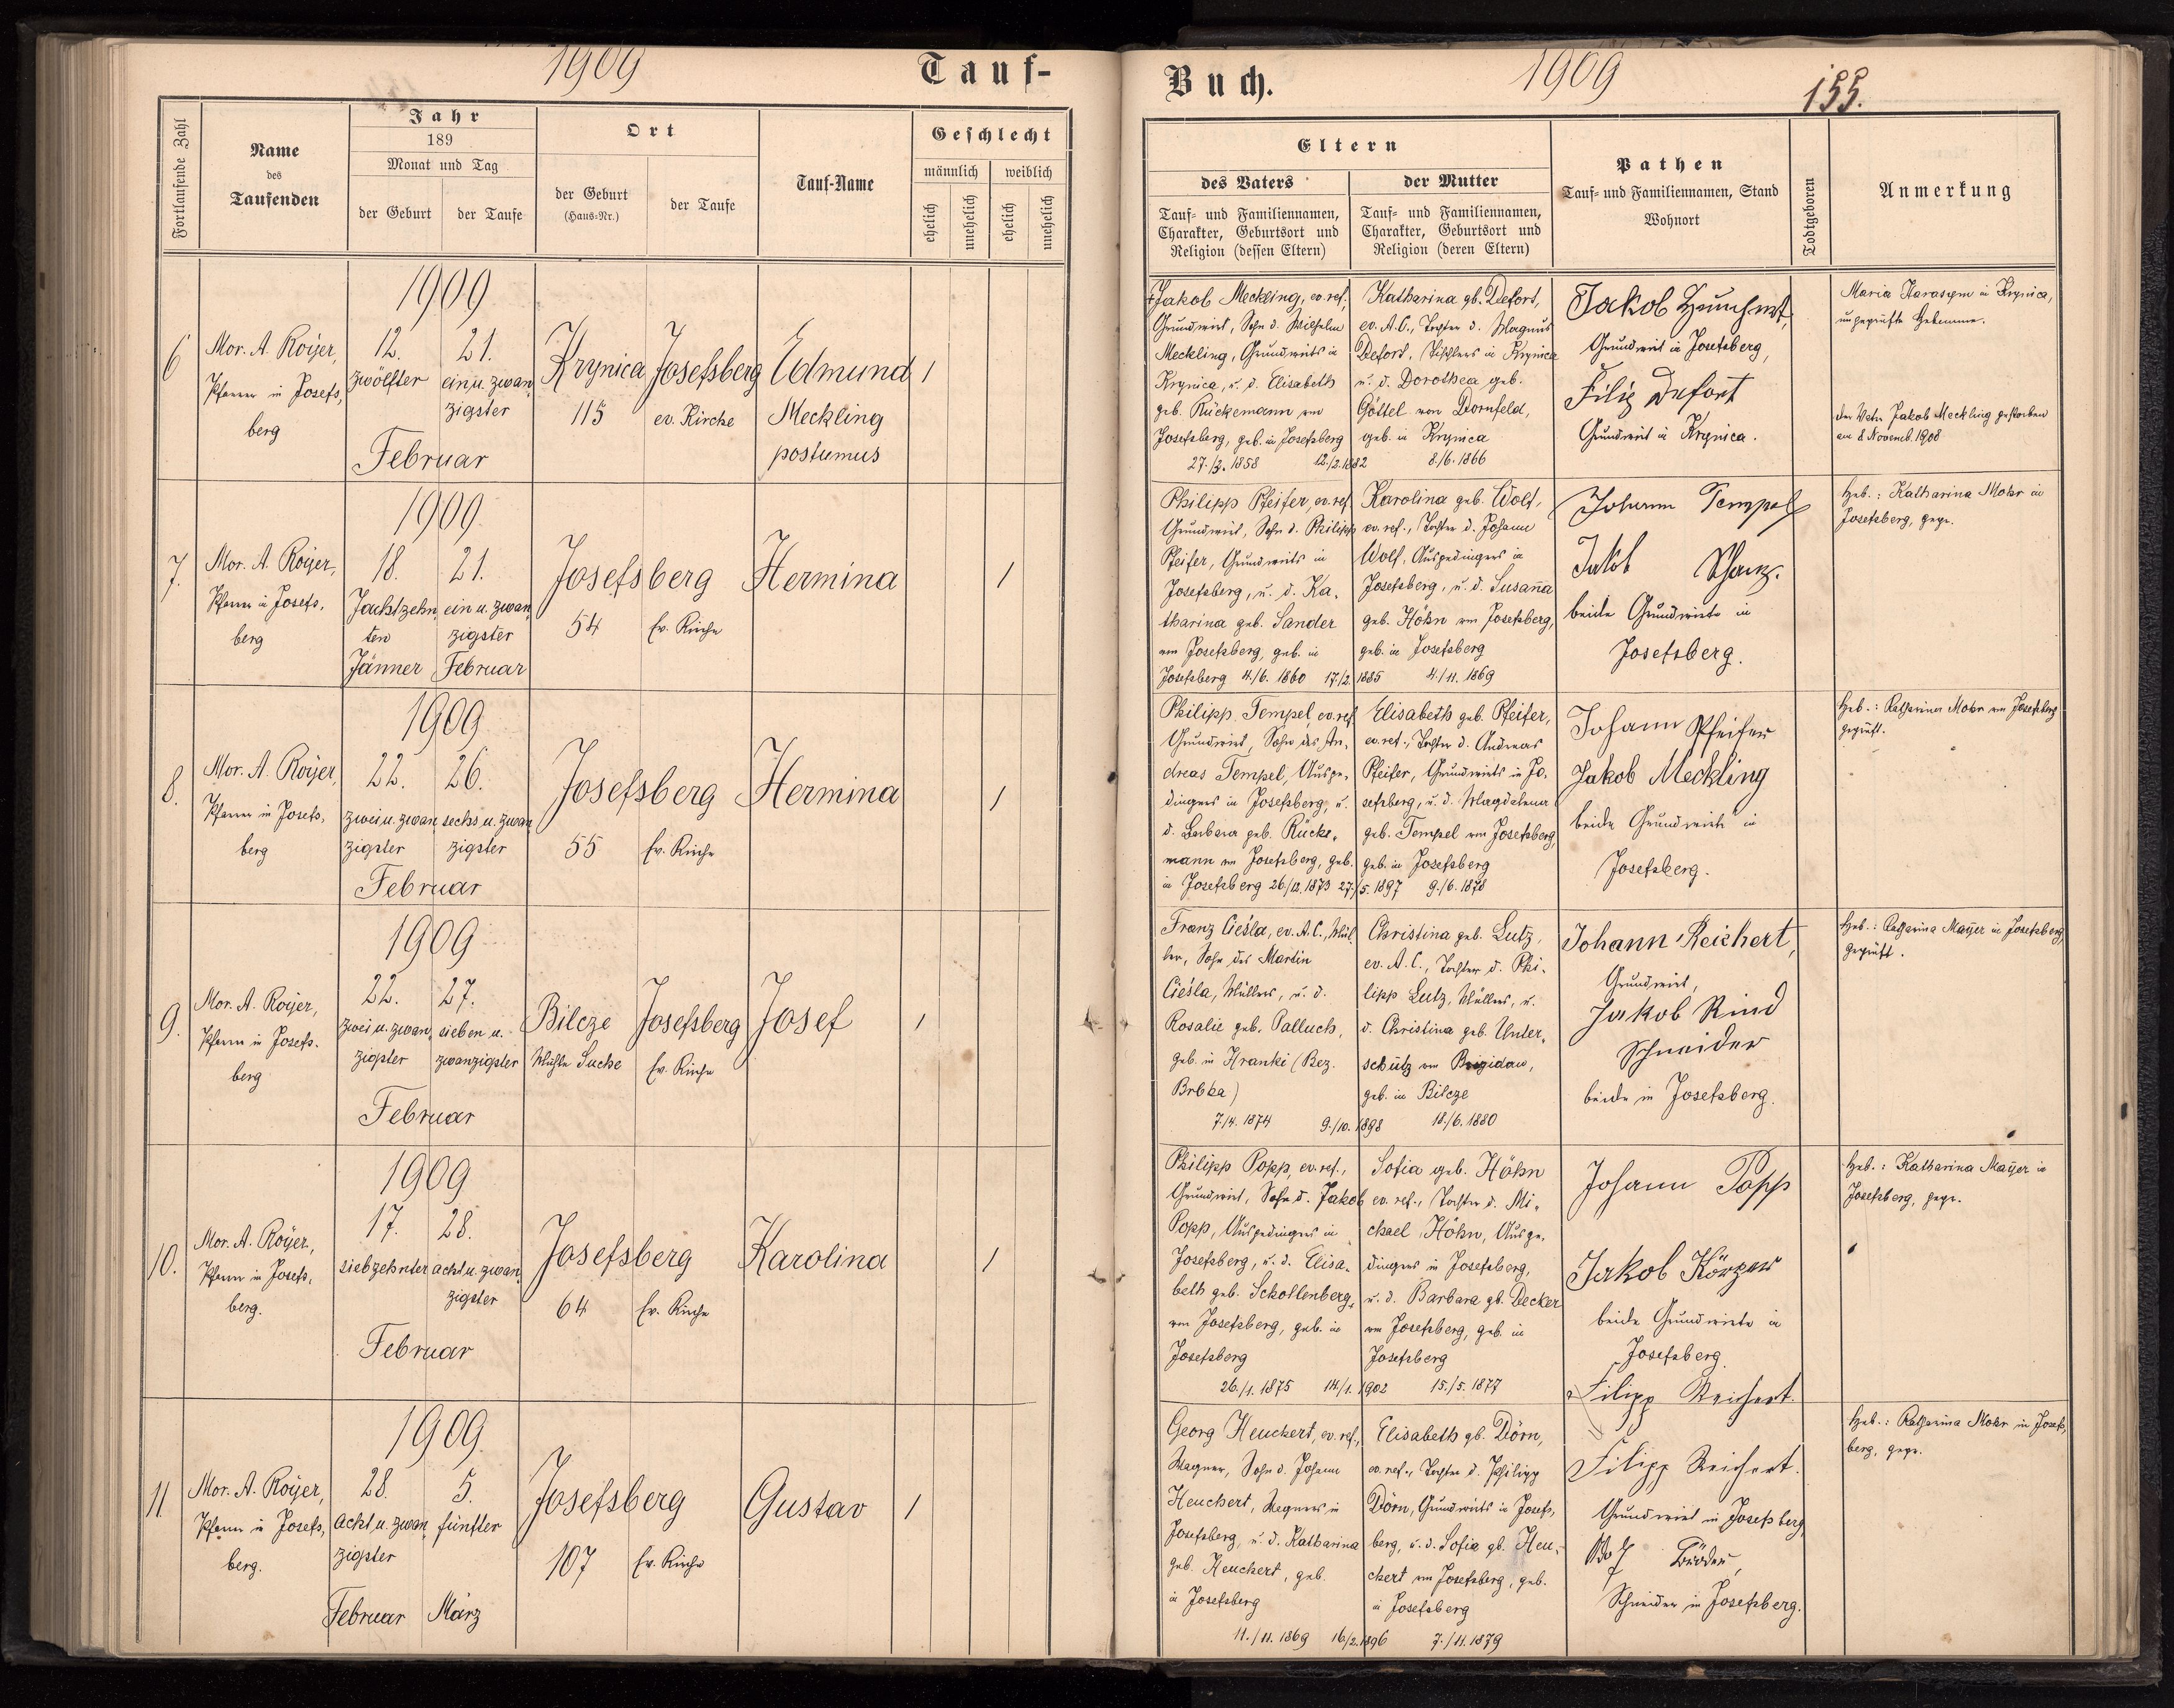 1909
Tauf-
Buch.
1909
155.
Fortlaufende Zahl
Name
des
Taufenden
Jahr
189
Monat und Tag
der Geburt
der Taufe
Ort
der Geburt
(Haus-Nr.)
der Taufe
Tauf-Name
Geschlecht
männlich
weiblich
ehelich
unehelich
ehelich
unehelich
Eltern
des Vaters
der Mutter
Tauf- und Familiennamen,
Charakter, Geburtsort und
Religion (dessen Eltern)
Tauf- und Familiennamen,
Charakter, Geburtsort und
Religion (deren Eltern)
Pathen
Tauf- und Familiennamen, Stand
Wohnort
Todtgeboren
Anmerkung
6
Mor. A. Royer,
Pfarrer in Josefs,
berg
1909
12.
zwölfter
21.
ein u. zwan,
zigster
Februar
Krynica
115
Josefsberg
ev. Kirche
Edmund
Meckling
postumus
1
+Jakob Meckling, ev. ref.,
Grundwirt, Sohn d. Wilhelm
Meckling, Grundwirts in
Krynica, u. d. Elisabeth
geb. Rückemann von
Josefsberg, geb. in Josefsberg
27./3. 1858
12./2. 1882
Katharina gb. Defort,
ev. A.C., Tochter d. Magnus
Defort, Tischlers in Krynica
u. d. Dorothea geb.
Göttel von Dornfeld,
geb. in Krynica
8./6. 1866
Jakob Heuchert,
Grundwirt in Josefsberg,
Filip Defort
Grundwirt in Krynica.
Maria Harasym in Krynica,
ungeprüfte Hebamme.
Der Vater Jakob Meckling gestorben
am 8 Novemb. 1908
7.
Mor. A. Royer,
Pfarrer in Josefs,
berg
1909
18.
Jachtzehn,
ten
Jänner
21.
ein u. zwan,
zigster
Februar
Josefsberg
54
Ev. Kirche
Hermina
1
Philipp Pfeifer, ev. ref.
Grundwirt, Sohn d. Philipp
Pfeifer, Grundwirts in
Josefsberg, u. d. Ka,
tharina geb. Sander
von Josefsberg, geb. in
Josefsberg 4./6. 1860
17./2. 1885
Karolina geb. Wolf,
ev. ref., Tochter d. Johann
Wolf, Ausgedingers in
Josefsberg, u. d. Susanna
geb. Höhn von Josefsberg,
geb. in Josefsberg
4./11. 1869
Johann Tempel
Jakob Schanz.
beide Grundwirte in
Josefsberg.
Heb.: Katharina Mohr in
Josefsberg, gepr.
8.
Mor. A. Royer,
Pfarrer in Josefs,
berg
1909
22.
zwei u. zwan,
zigster
26.
sechs u. zwan,
zigster
Februar
Josefsberg
55
Ev. Kirche
Hermina
1
Philipp Tempel, ev. ref.
Grundwirt, Sohn des An,
dreas Tempel, Ausge,
dingers in Josefsberg, u.
d. Barbara geb. Rücke,
mann von Josefsberg, geb.
in Josefsberg 26./12. 1873
27./5. 1897
Elisabeth geb. Pfeifer,
ev. ref., Tochter d. Andreas
Pfeifer, Grundwirts in Jo,
sefsberg, u. d. Magdalena
geb. Tempel von Josefsberg,
geb. in Josefsberg
9./6. 1878
Johann Pfeifer
Jakob Meckling
beide Grundwirte in
Josefsberg.
Heb.: Katharina Mohr von Josefsberg
geprüft.
9.
Mor. A. Royer,
Pfarrer in Josefs,
berg
1909
22.
zwei u. zwan,
zigster
27.
sieben u.
zwanzigster
Februar
Bilcze
Mühle Suche
Josefsberg
Ev. Kirche
Josef
1
Franz Cieśla, ev. A.C., Mül,
ler, Sohn des Martin
Cieśla, Müllers, u. d.
Rosalie geb. Palluch,
geb. in Hranki (Bez.
Brbka)
7./4. 1874
9./10. 1898
Christina geb. Lutz,
ev. A.C., Tochter d. Phi,
lipp Lutz, Müllers, u.
d. Christina geb. Unter,
schütz von Brigidau,
geb. in Bilcze
18./6. 1880
Johann Reichert,
Grundwirt,
Jakob Rind
Schneider
beide in Josefsberg.
Heb.: Katharina Mayer in Josefsberg,
geprüft.
10.
Mor. A. Royer,
Pfarrer in Josefs,
berg.
1909
17.
siebzehnter
28.
acht u. zwan,
zigster
Februar
Josefsberg
64
Ev. Kirche
Karolina
1
Philipp Popp, ev. ref.,
Grundwirt, Sohn d. Jakob
Popp, Ausgedingers in
Josefsberg, u. d. Elisa,
beth geb. Schollenberg,
von Josefsberg, geb. in
Josefsberg
26./1. 1875
14./1. 1902
Sofia geb. Höhn
ev. ref., Tochter d. Mi,
chael Höhn, Ausge,
dingers in Josefsberg,
u. d. Barbara gb. Decker
von Josefsberg, geb. in
Josefsberg
15./5. 1877
Johann Popp
Jakob Körper
beide Grundwirte in
Josefsberg
Filipp Reichert.
Heb.: Katharina Mayer in
Josefsberg, gepr.
11.
Mor. A. Royer,
Pfarrer in Josefs,
berg.
1909
28.
acht u. zwan,
zigster
Februar
5.
fünfter
März
Josefsberg
107
Ev. Kirche
Gustav
1
Georg Heuchert, ev. ref.,
Wagner, Sohn d. Johann
Heuchert, Wagners in
Josefsberg, u. d. Katharina
geb. Heuchert, geb.
in Josefsberg
11./11. 1869
16/2. 1896
Elisabeth gb. Dörn,
ev. ref., Tochter d. Philipp
Dörn, Grundwirts in Josefs,
berg, u. d. Sofia gb. Heu,
chert von Josefsberg, geb.
in Josefsberg
7./11. 1879
Filipp Reichert.
Grundwirt in Josefsberg
Schneider in Josefsberg.
Heb.: Katharina Mohr in Josefs,
berg, gepr.